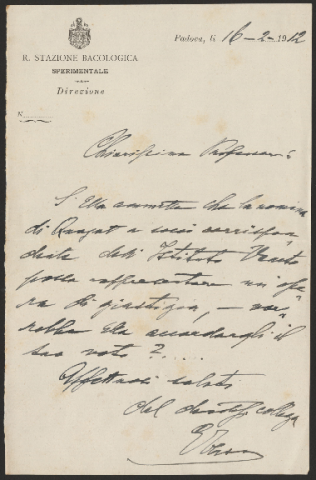 R. STAZIONE BACOLOGICA
SPERIMENTALE
Direzione
N.
Padova, li 16-2-1912
Chiarissimo Professore:
S'Ella ammette che la nomina
di Quajat a socio corrispon-
dente dell'Istituto Veneto
possa rappresentare un'ope-
ra di giustizia, — vor-
rebbe Ella accordargli il
suo voto?....
Affettuosi saluti
del devot. collega
EVerson